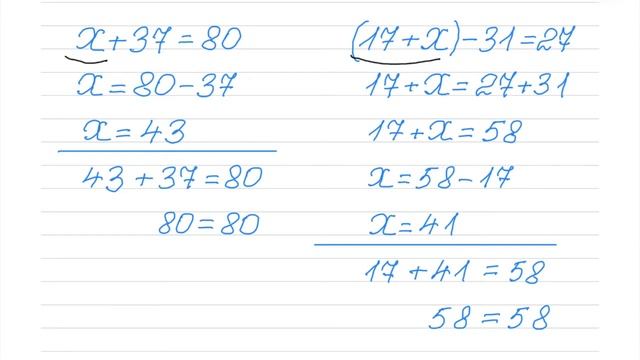 x+37=80
x=80-37
x=43
43+37=80
80=80
(17+x)-31=27
17+x=27+31
17+x=58
x=58-17
x=41
17+41=58
58=58